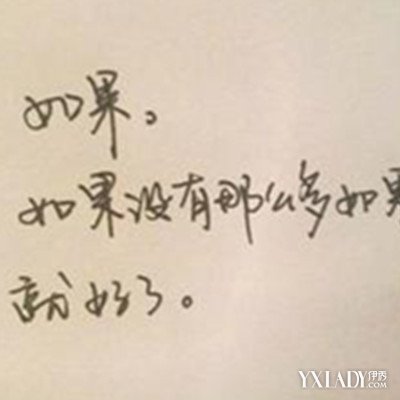 如果。
如果没有那么多如果
就好了。
YXLADY.com伊秀